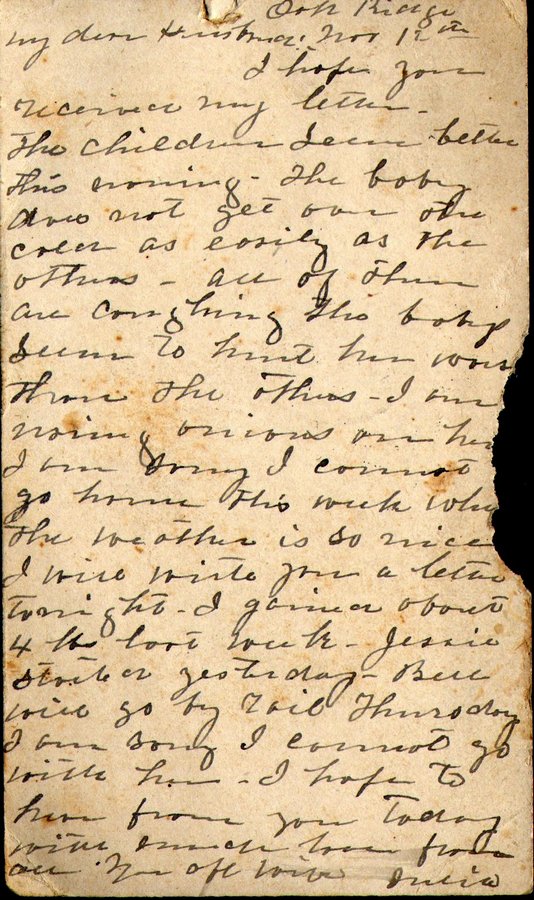 Oak Ridge
My dear Husband: Nov 12th
I hope you
received my letter -
The children seem better
this morning - The baby
does not get over the
cold as easily as the
others - all of them
are coughing The babys
seem to hurt her worse
than the others - I am
using onions on her
I am sorry I cannot
go home this week when
the weather is so nice
I will write you a letter
tonight - I gained about
4 lbs last week - Jessie
started yesterday - Bell
will go by rail Thursday
I am sorry I cannot go
with her - I hope to
hear from you today
with much love from
all. Your aff wife